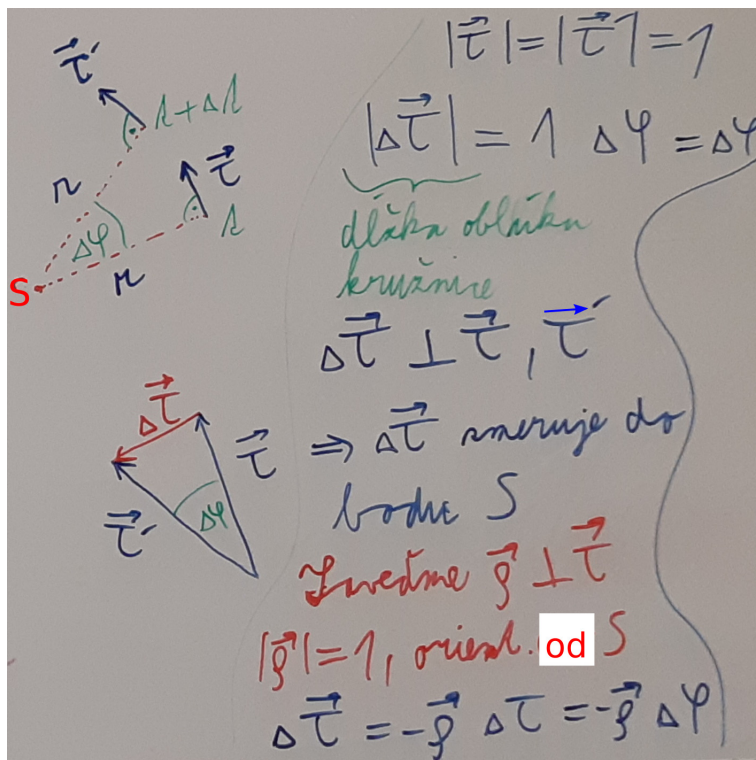 τ⃗'
s+Δs
r
τ⃗
Δφ
s
r
S
|τ⃗|=|τ⃗'|=1
|Δτ⃗| = 1 Δφ = Δφ
dĺžka oblúka
kružnice
Δτ⃗ ⊥ τ⃗, τ⃗'
Δτ⃗
τ⃗
τ⃗'
Δφ
⇒ Δτ⃗ smeruje do
bodu S
Zaveďme ρ⃗ ⊥ τ⃗
|ρ⃗|=1, orient. od S
Δτ⃗ = -ρ⃗ Δτ = -ρ⃗ Δφ